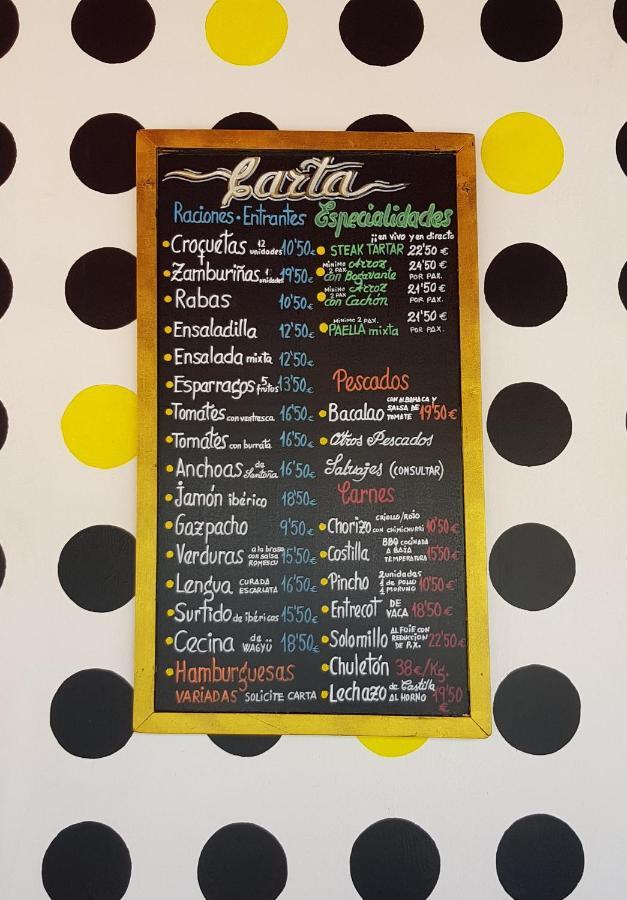 Carta
Raciones · Entrantes
Croquetas 12 unidades 10'50€
Zamburiñas unidades 19'50€
Rabas 10'50€
Ensaladilla 12'50€
Ensalada mixta 12'50€
Esparragos 5 frutos 13'50€
Tomates con ventresca 16'50€
Tomates con burrata 16'50€
Anchoas de Santoña 16'50€
Jamón ibérico 18'50€
Gazpacho 9'50€
Verduras a la brasa con salsa ROMESCU 15'50€
Lengua CURADA ESCARLATA 16'50€
Surtido de ibéricos 15'50€
Cecina de WAGYÜ 18'50€
Hamburguesas
VARIADAS SOLICITE CARTA
Especialidades
¡¡en vivo y en directo
STEAK TARTAR 22'50€
MÍNIMO 2 PAX Arroz con Bogavante 24'50€ POR PAX.
MÍNIMO 2 PAX Arroz con Cachón 21'50€ POR PAX.
MÍNIMO 2 PAX. PAELLA mixta 21'50€ POR PAX.
Pescados
Bacalao CON ALBAHACA Y SALSA DE TOMATE 19'50€
Otros Pescados
Salvajes (CONSULTAR)
Carnes
Chorizo CRIOLLO/ROJO CON CHIMICHURRI 10'50€
Costilla BBQ COCINADA A BAJA TEMPERATURA 15'50€
Pincho 2 unidades 1 de POLLO 1 MORUNO 10'50€
Entrecot DE VACA 18'50€
Solomillo AL FOIE CON REDUCCIÓN DE P.X. 22'50€
Chuletón 38€/Kg.
Lechazo de Castilla AL HORNO 19'50€